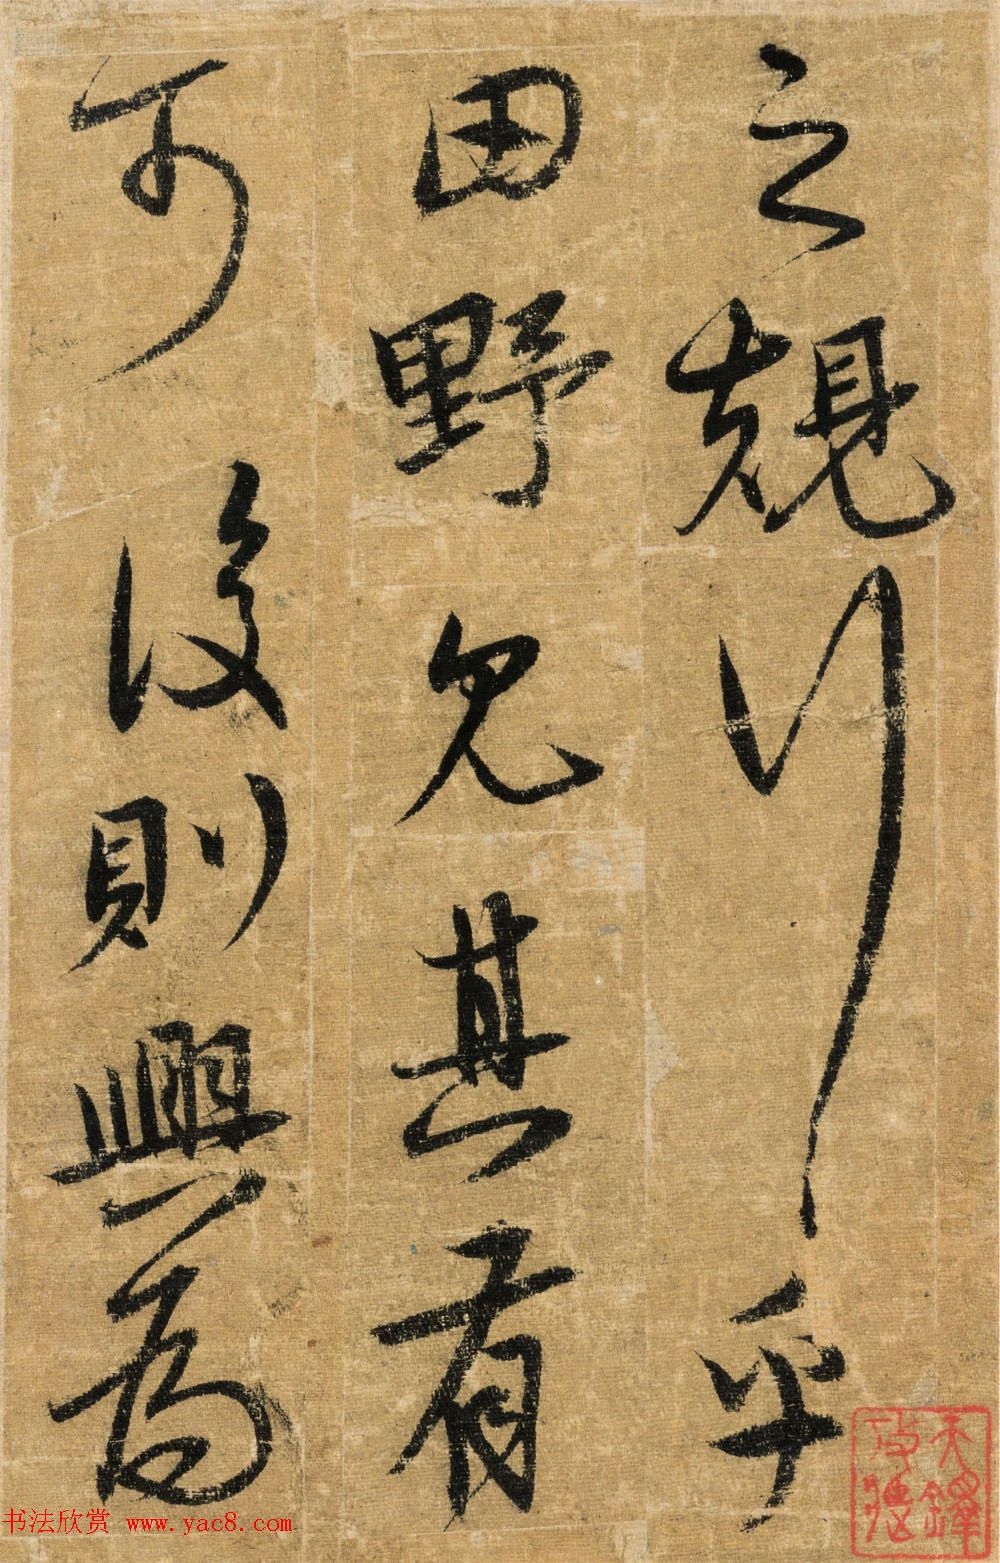 之規行乎
田野見其有
可復則興為
书法欣赏 www.yac8.com